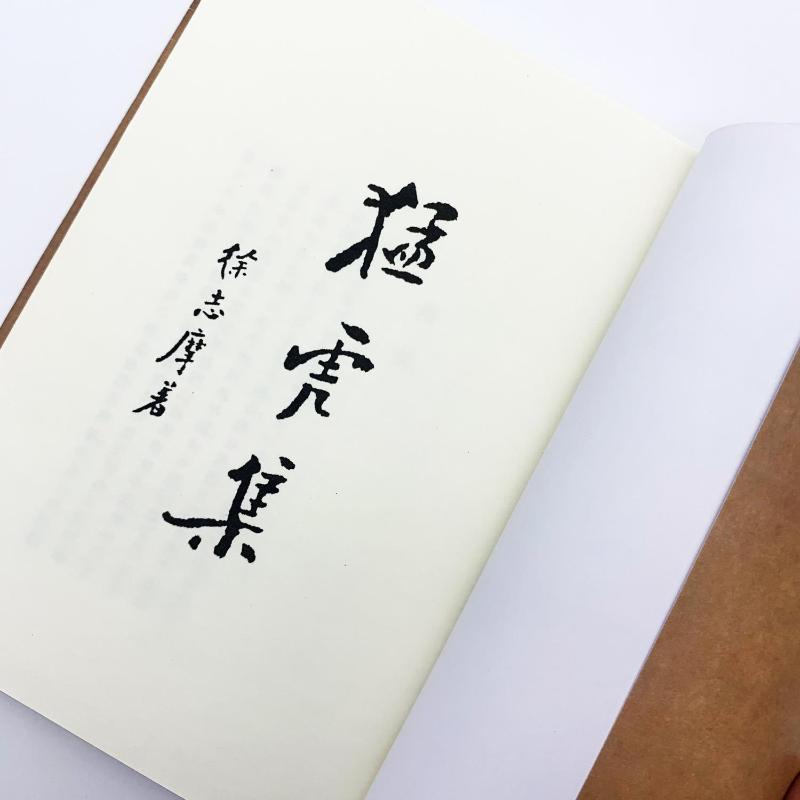 猛虎集
徐志摩著